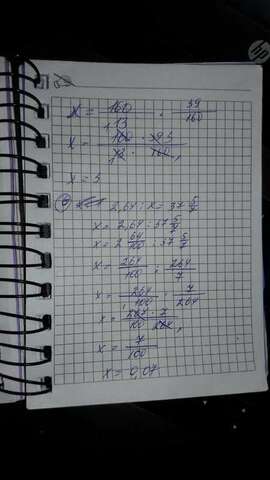 x = 160/13 · 39/160
x = 160 · 39 3/13 · 160,
x = 3
2,64 : x = 37 5/7
x = 2,64 : 37 5/7
x = 2 64/100 : 37 5/7
x = 264/100 : 264/7
x = 264/100 · 7/264
x = 264 · 7/100 · 264,
x = 7/100
x = 0,07